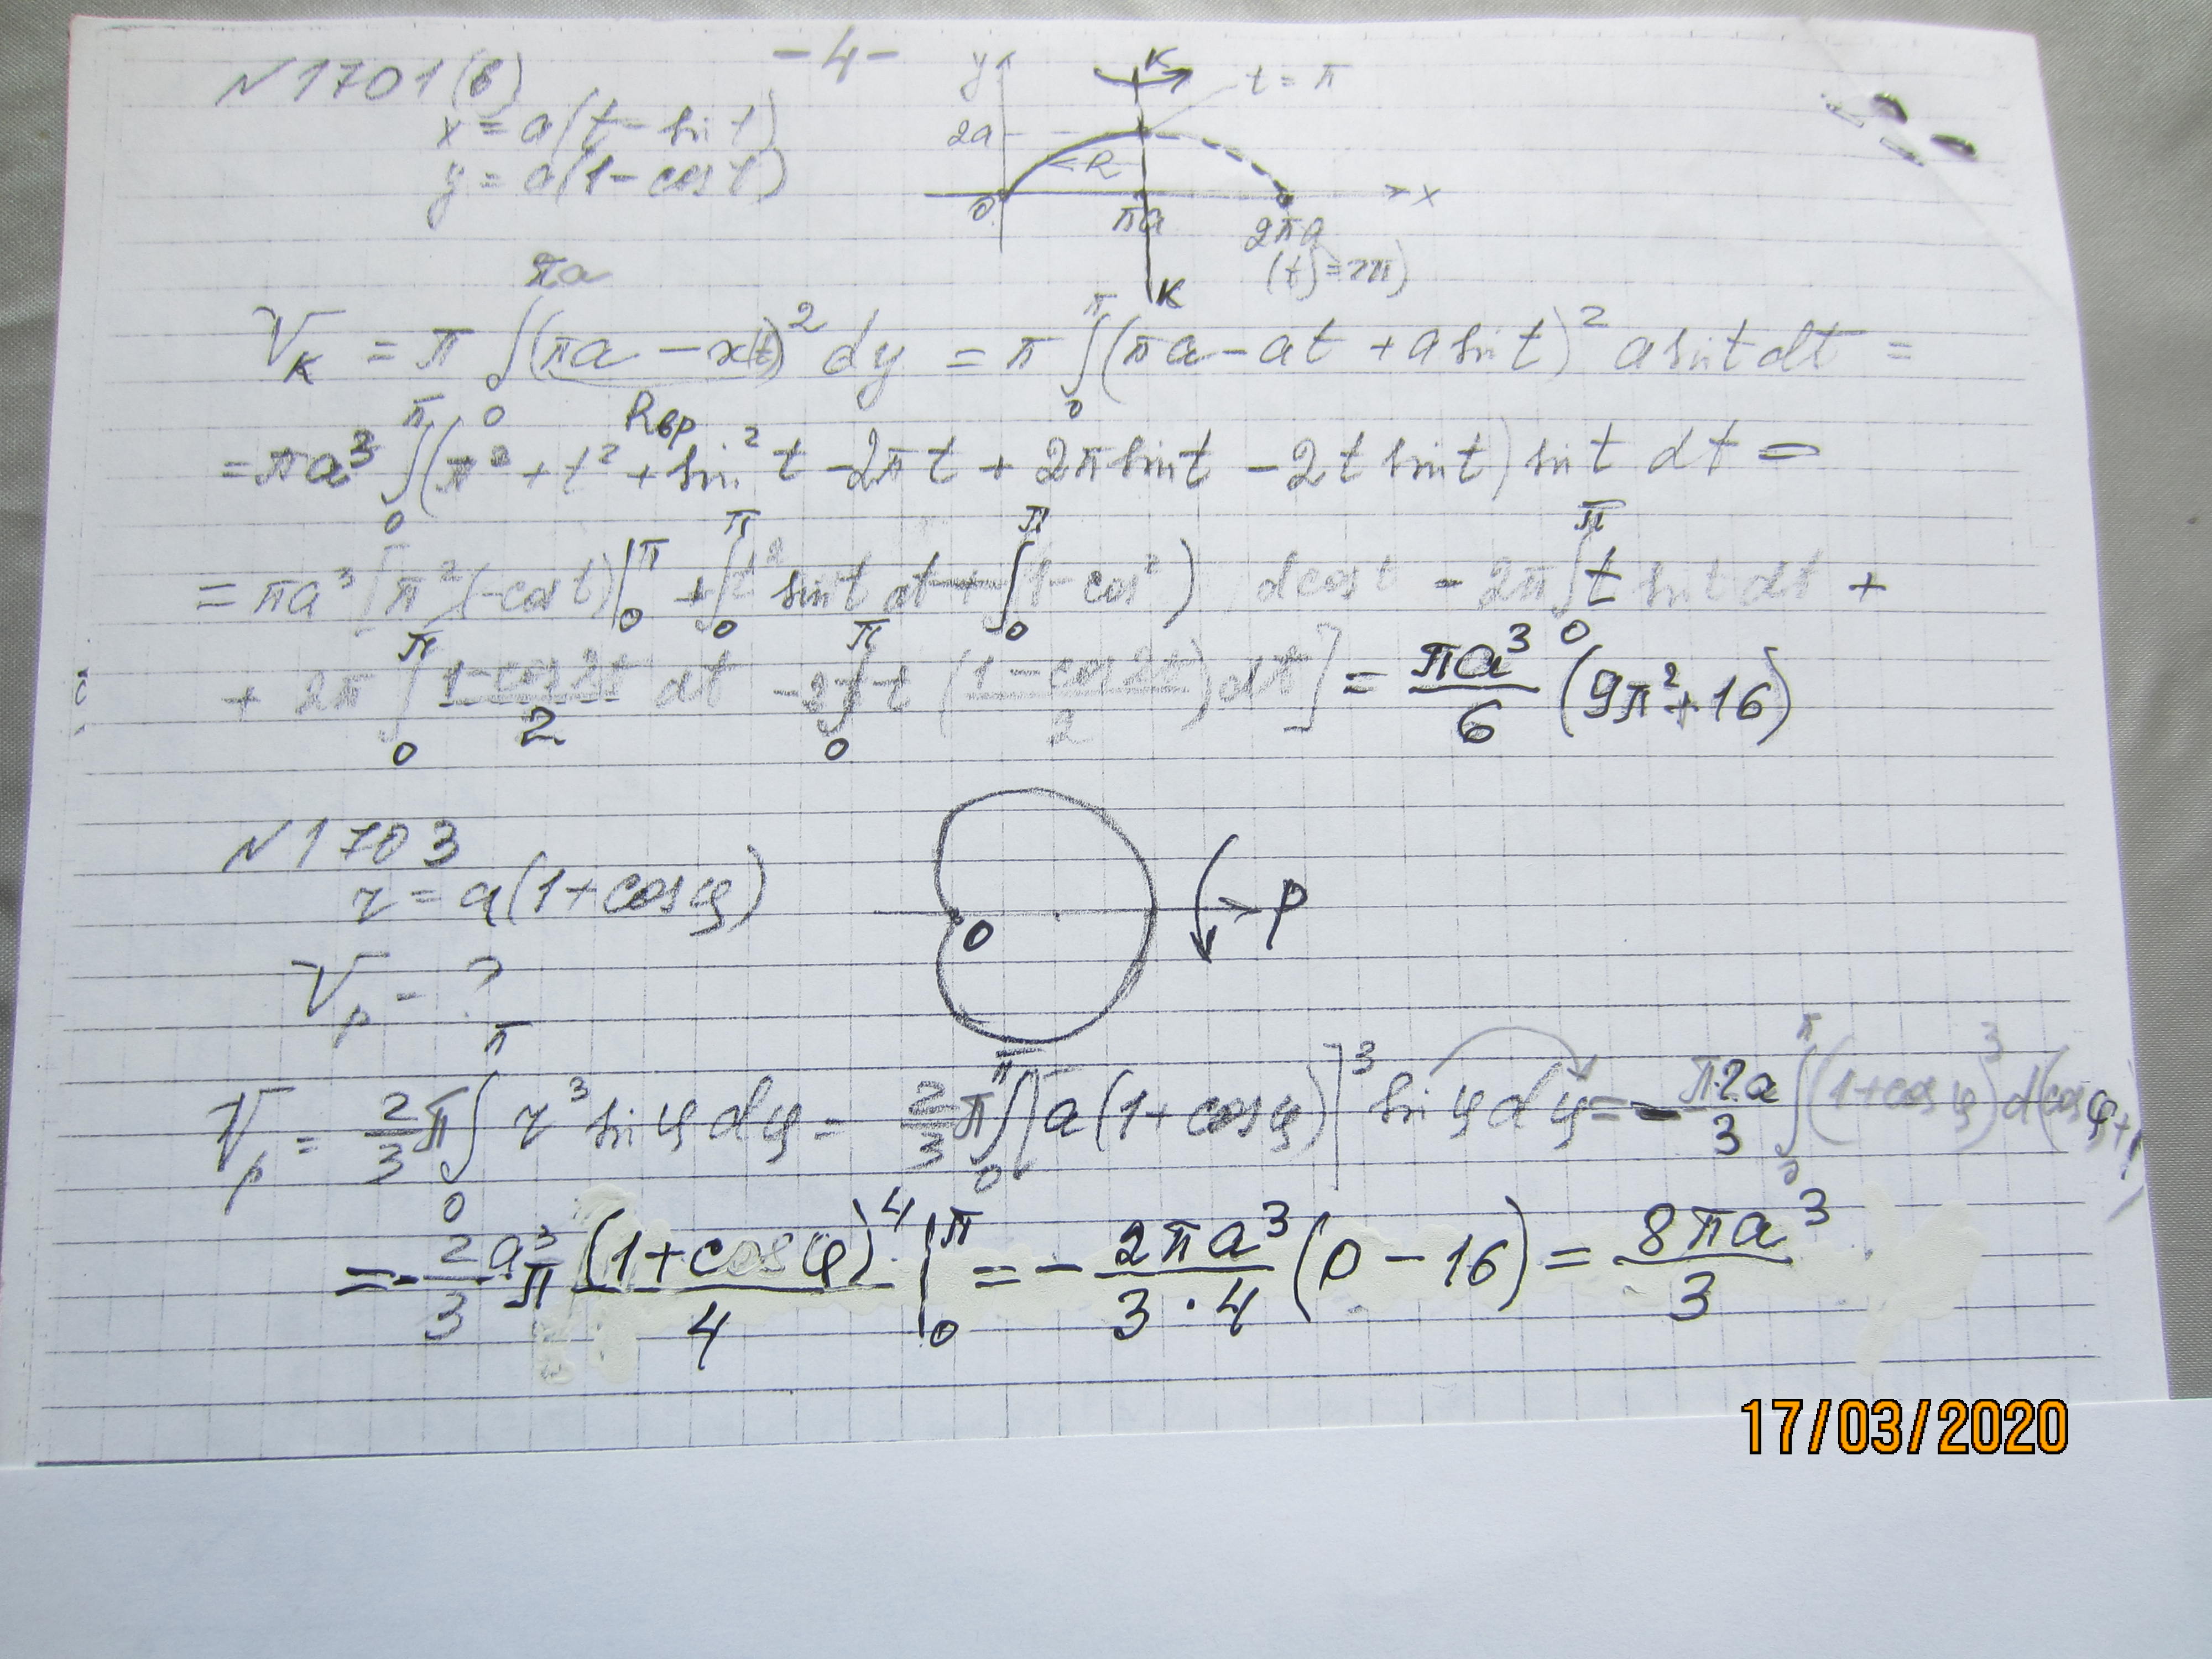 -4-
N1701(в)
x = a(t - sin t)
y = a(1 - cos t)
y
K
t = π
2a
R
0
πa
2πa
x
(t = 2π)
K
V_K = π ∫_0^{πa} (πa - x(t))² dy = π ∫_0^π (πa - at + a sin t)² a sin t dt =
R вр
= πa³ ∫_0^π (π² + t² + sin² t - 2πt + 2π sin t - 2t sin t) sin t dt =
= πa³ [π² (-cos t)|_0^π + ∫_0^π t² sin t dt + ∫_0^π (1 - cos²) d cos t - 2π ∫_0^π t sin t dt +
+ 2π ∫_0^π (1 - cos 2t)/2 dt - 2 ∫_0^π t (1 - cos 2t)/2 dt] = πa³/6 (9π² + 16)
N1703
r = a(1 + cos φ)
0
P
V_p - ?
V_p = 2/3 π ∫_0^π r³ sin φ dφ = 2/3 π ∫_0^π [a(1 + cos φ)]³ sin φ dφ = - π·2a/3 ∫_0^π (1 + cos φ)³ d(cos φ + 1)
= - 2/3 a³ π (1 + cos φ)⁴/4 |_0^π = - 2πa³/3·4 (0 - 16) = 8πa³/3
17/03/2020